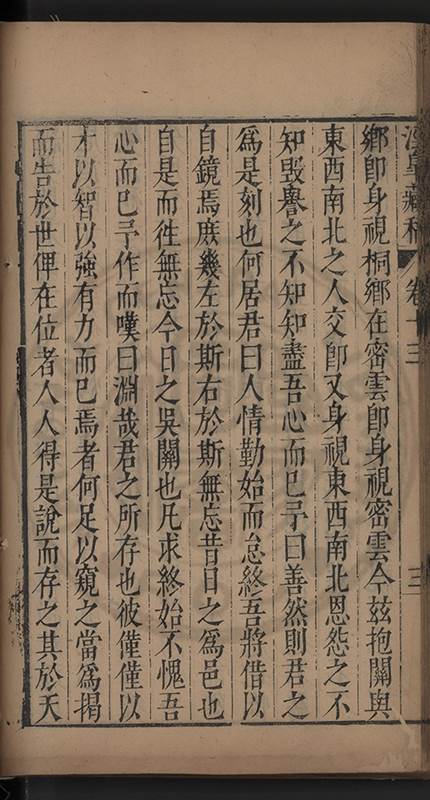 鄉即身視桐鄉在密雲即身視密雲今茲抱關與
東西南北之人交即又身視東西南北恩怨之不
知毀譽之不知知盡吾心而已予曰善然則君之
為是刻也何居君曰人情勤始而怠終吾將借以
自鏡焉庶幾左於斯右於斯無忘昔日之為邑也
自是而徃無忘今日之吳關也凡求終始不愧吾
心而已予作而嘆曰淵哉君之所存也彼僅僅以
才以智以強有力而已焉者何足以窺之當為揭
而告於世俾在位者人人得是說而存之其於天
藏稿 卷十三
三